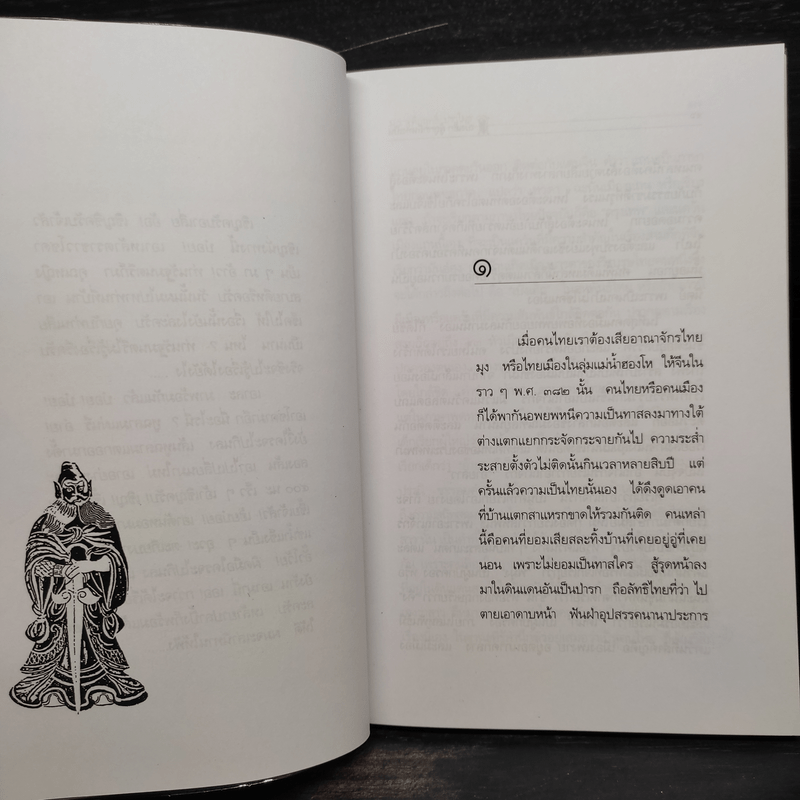 ๑
เมื่อคนไทยเราต้องเสียอาณาจักรไทย
มุง หรือไทยเมืองในลุ่มแม่น้ำฮองโห ให้จีนใน
ราว ๆ พ.ศ. ๓๘๒ นั้น คนไทยหรือคนเมือง
ก็ได้พากันอพยพหนีความเป็นทาสลงมาทางใต้
ต่างแตกแยกกระจัดกระจายกันไป ความระส่ำ
ระสายตั้งตัวไม่ติดนั้นกินเวลาหลายสิบปี แต่
ครั้นแล้วความเป็นไทยนั้นเอง ได้ดึงดูดเอาคน
ที่บ้านแตกสาแหรกขาดให้รวมกันติด คนเหล่า
นี้คือคนที่ยอมเสียสละทิ้งบ้านที่เคยอยู่อู่ที่เคย
นอน เพราะไม่ยอมเป็นทาสใคร สู้รุดหน้าลง
มาในดินแดนอันเป็นปารก ถือลัทธิไทยที่ว่า ไป
ตายเอาดาบหน้า ฟันฝ่าอุปสรรคนานาประการ